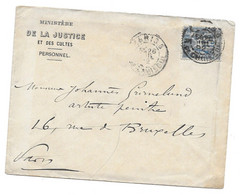 MINISTÈRE
DE LA JUSTICE
ET DES CULTES
PERSONNEL.
PARIS
Monsieur Johannes Grimelund
artiste peintre
16, rue de Bruxelles
Paris